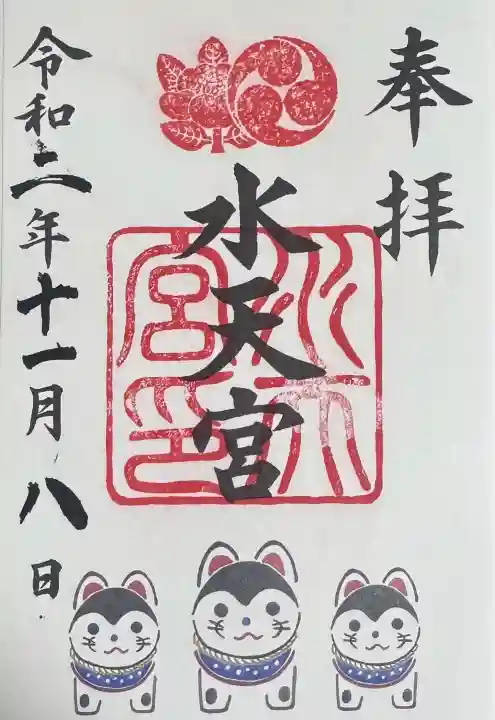 奉拝
水天宮
水天宮印
令和二年十一月八日